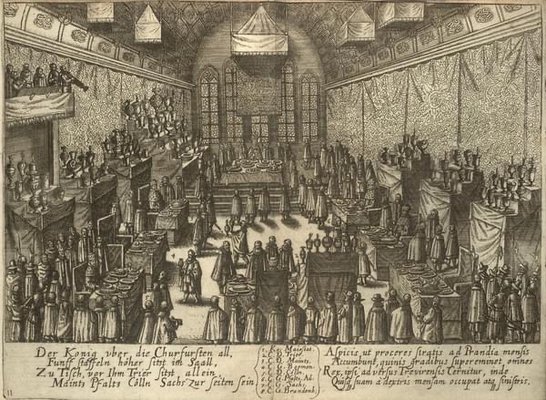 Der König vber die Churfursten all,
Funff staffeln höher sitzt im Saall,
Zu Tisch, vor Ihm Trier sitzt allein
Maintz Pfaltz Cölln Sachs zur seiten sein
Maiestet.
Trier.
Maintz
Cöln.
Sachs.
Brandenb.
Aspicis, ut proceres ad Prandia mensis
Accumbunt, quinis gradibus supereminet omnes
Rex, ipsi adversus Trevirensis Cernitur, inde
Quisq suam a dextris mensam occupat atq sinistris.
11